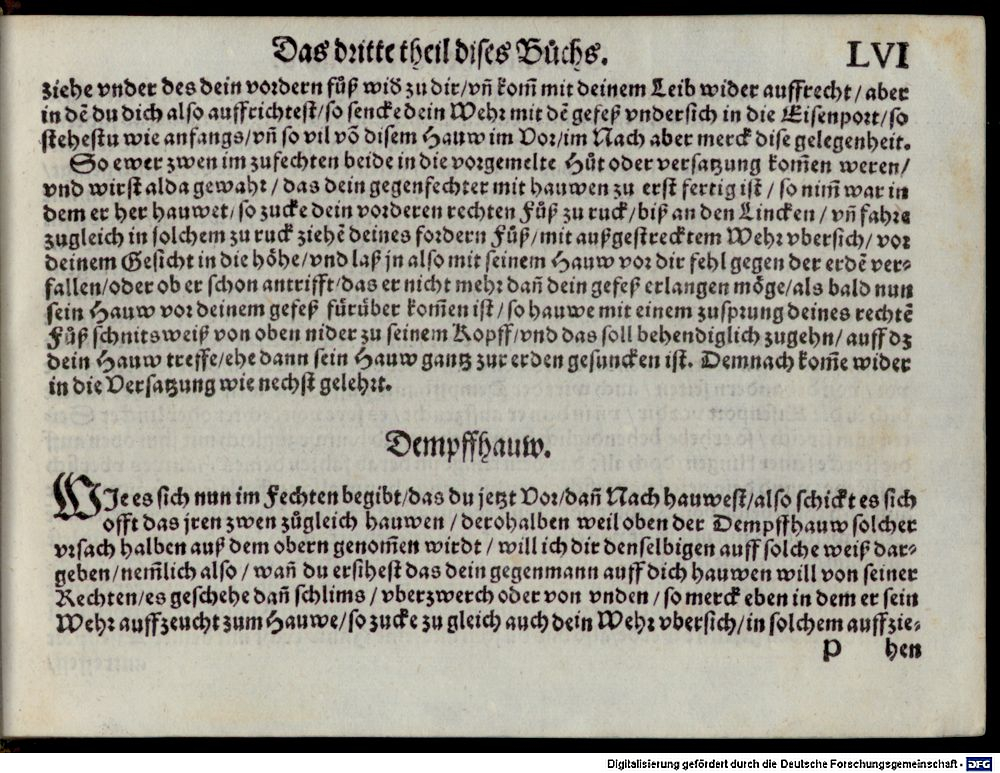 Das dritte theil dises Bůchs. LVI
ziehe vnder des dein vordern fůß wid̕ zu dir/vn̄ kom̄ mit deinem Leib wider auffrecht/aber
in dē du dich also auffrichtest/so sencke dein Wehr mit dē gefeß vndersich in die Eisenport/so
stehestu wie anfangs/vn̄ so vil vō disem Hauw im Vor/im Nach aber merck dise gelegenheit.
So ewer zwen im zufechten beide in die vorgemelte Hůt oder versatzung kom̄en weren/
vnd wirst alda gewahr/das dein gegenfechter mit hauwen zu erst fertig ist/so nim̄ war in
dem er her hauwet/so zucke dein vorderen rechten Fůß zu ruck/biß an den Lincken/vn̄ fahre
zugleich in solchem zu ruck ziehē deines fordern Fůß/mit außgestrecktem Wehr vbersich/vor
deinem Gesicht in die hőhe/vnd laß jn also mit seinem Hauw vor dir fehl gegen der erdē ver-
fallen/oder ob er schon antrifft/das er nicht mehr dan̄ dein gefeß erlangen mőge/als bald nun
sein Hauw vor deinem gefeß fürüber kom̄en ist/so hauwe mit einem zusprung deines rechtē
Fůß schnitsweiß von oben nider zu seinem Kopff/vnd das soll behendiglich zugehn/auff dz
dein Hauw treffe/ehe dann sein Hauw gantz zur erden gesuncken ist. Demnach kom̄e wider
in die Versatzung wie nechst gelehrt.
Dempffhauw.
WJe es sich nun im Fechten begibt/das du jetzt Vor/dan̄ Nach hauwest/also schickt es sich
offt das jren zwen zůgleich hauwen/derohalben weil oben der Dempffhauw solcher
vrsach halben auß dem obern genom̄en wirdt/will ich dir denselbigen auff solche weiß dar-
geben/nem̄lich also/wan̄ du ersihest das dein gegenmann auff dich hauwen will von seiner
Rechten/es geschehe dan̄ schlims/vberzwerch oder von vnden/so merck eben in dem er sein
Wehr auffzeucht zum Hauwe/so zucke zu gleich auch dein Wehr vbersich/in solchem auffzie-
P hen
Digitalisierung gefördert durch die Deutsche Forschungsgemeinschaft - DFG